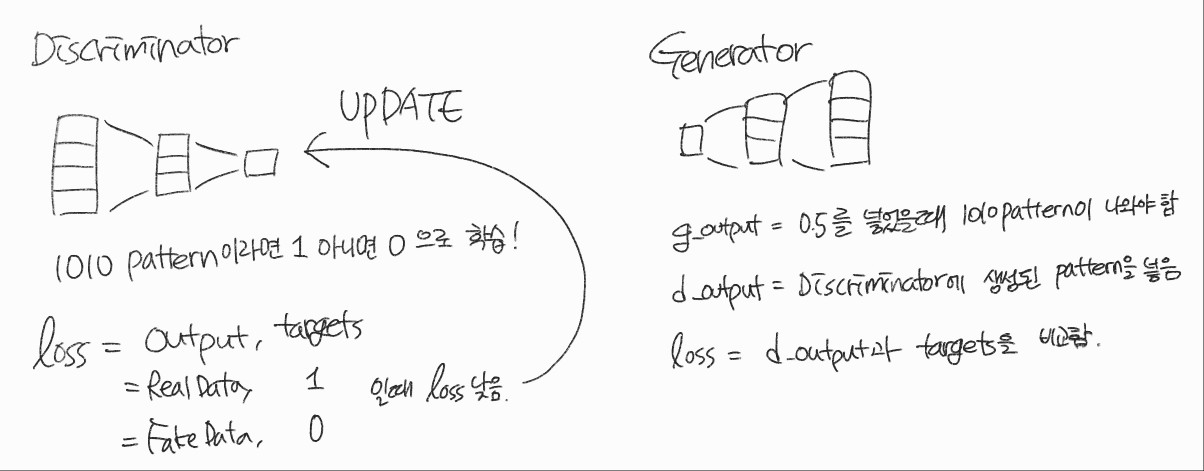 Discriminator
UPDATE
1010 pattern이라면 1 아니면 0 으로 학습!
loss = output, targets
= Real Data, 1 일때 loss 낮음.
= Fake Data, 0
Generator
g_output = 0.5를 넣었을때 1010 pattern이 나와야 함
d_output = Discriminator에 생성된 pattern을 넣음
loss = d_output과 targets을 비교함.